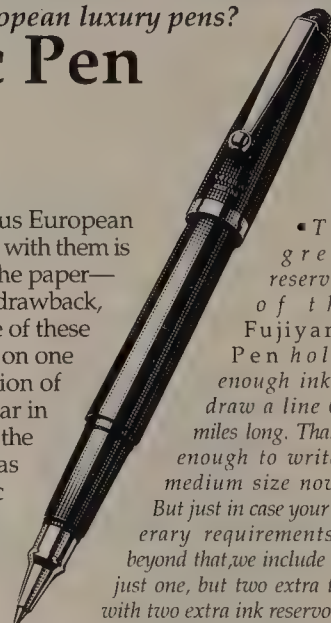 opean luxury pens?
Pen
us European
with them is
he paper—
drawback,
e of these
on one
ion of
ar in
the
as
• T
g r e
reserv
o f t h
Fujiyam
Pen hol
enough ink
draw a line
miles long. Tha
enough to writ
medium size nov
But just in case your
erary requirements
beyond that, we include
just one, but two extra
with two extra ink reservo